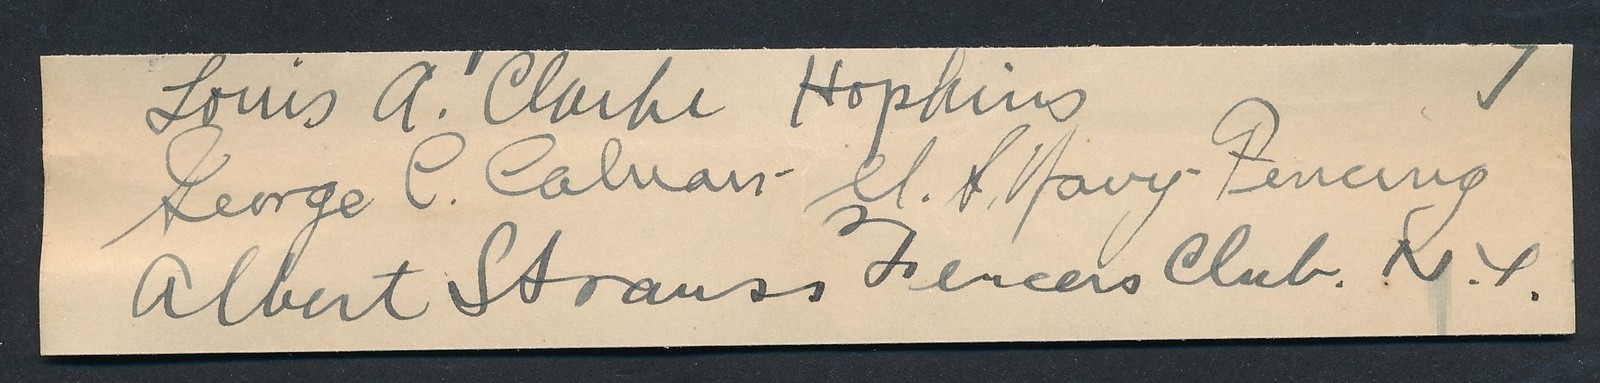 Louis A. Clarke Hopkins
George C. Calnan - U.S. Navy - Fencing
Albert Strauss Fencers Club. N.Y.